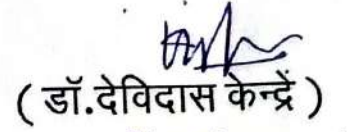 ( डॉ.देविदास केन्द्रें )